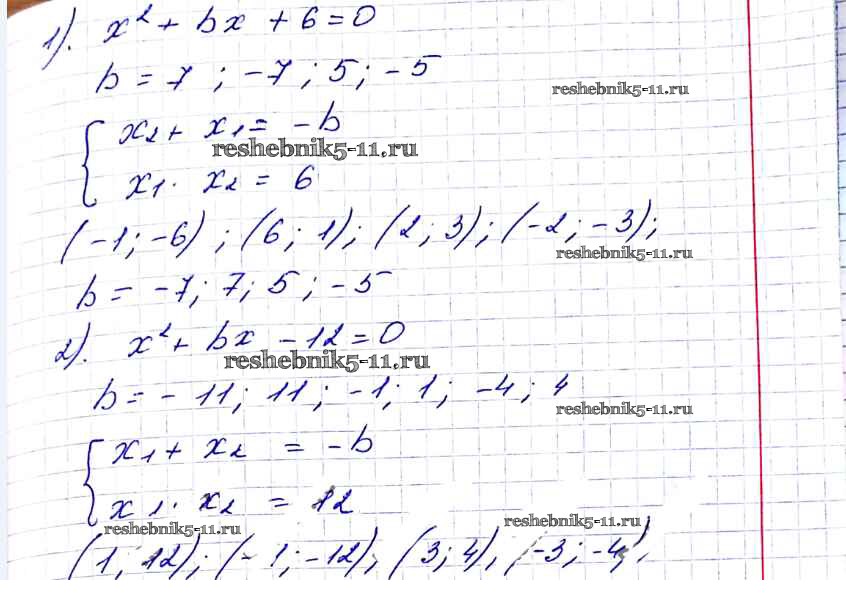 1). x² + bx + 6 = 0
b = 7 ; -7 ; 5 ; -5
reshebnik5-11.ru
x₂ + x₁ = -b
reshebnik5-11.ru
x₁ · x₂ = 6
(-1; -6) ; (6; 1); (2; 3); (-2; -3);
reshebnik5-11.ru
b = -7; 7; 5; -5
2). x² + bx - 12 = 0
reshebnik5-11.ru
b = -11; 11; -1; 1; -4; 4
reshebnik5-11.ru
x₁ + x₂ = -b
x₁ · x₂ = 12
reshebnik5-11.ru
reshebnik5-11.ru
(1; 12); (-1; -12), (3; 4), (-3; -4),